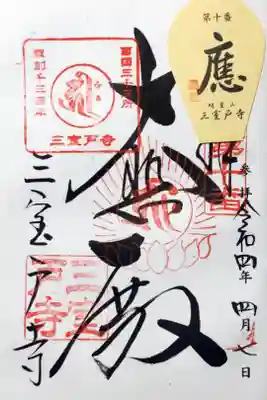 第十番
應
明星山
三室戸寺
参拝 令和四年 四月七日
大悲殿
三室戸寺
西国三十三所
草創千三百年
三室戸寺
三室
戸寺